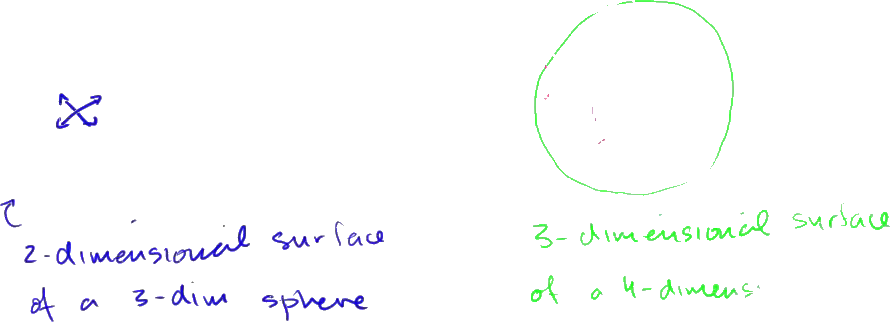 2-dimensional surface
of a 3-dim sphere
3-dimensional surface
of a 4-dimens